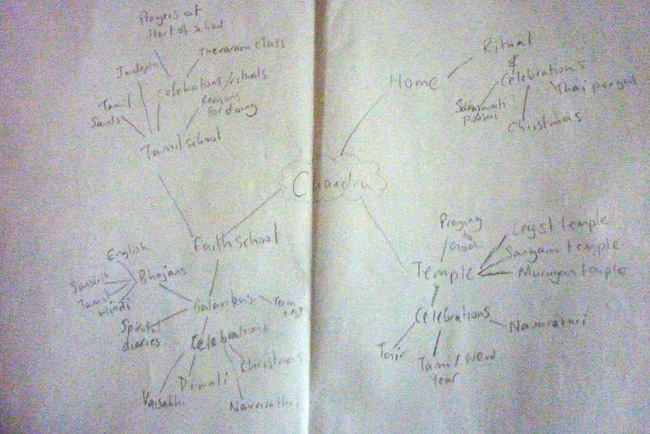 Prayers at
start of school
Thevaram class
In depth
celebrations/rituals
Tamil
Saints
Reasons
for doing
Tamil school
Home
Ritual
&
Celebrations
Saraswati
poosai
Thai pongal
Christmas
Chandru
Faith school
English
Sanskrit
Tamil
Hindi
Bhajans
Balavikas
Spiritual
diaries
Celebrations
Christmas
Diwali
Vaisakhi
Navarathri
Praying
to
God
Temple
Sangam temple
Murugan temple
Celebrations
Navarathri
Tamil New
Year